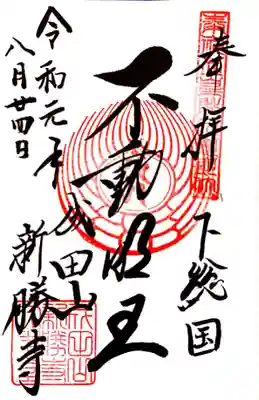 奉拝
下總国
不動明王
成田山
新勝寺
令和元年
八月廿四日